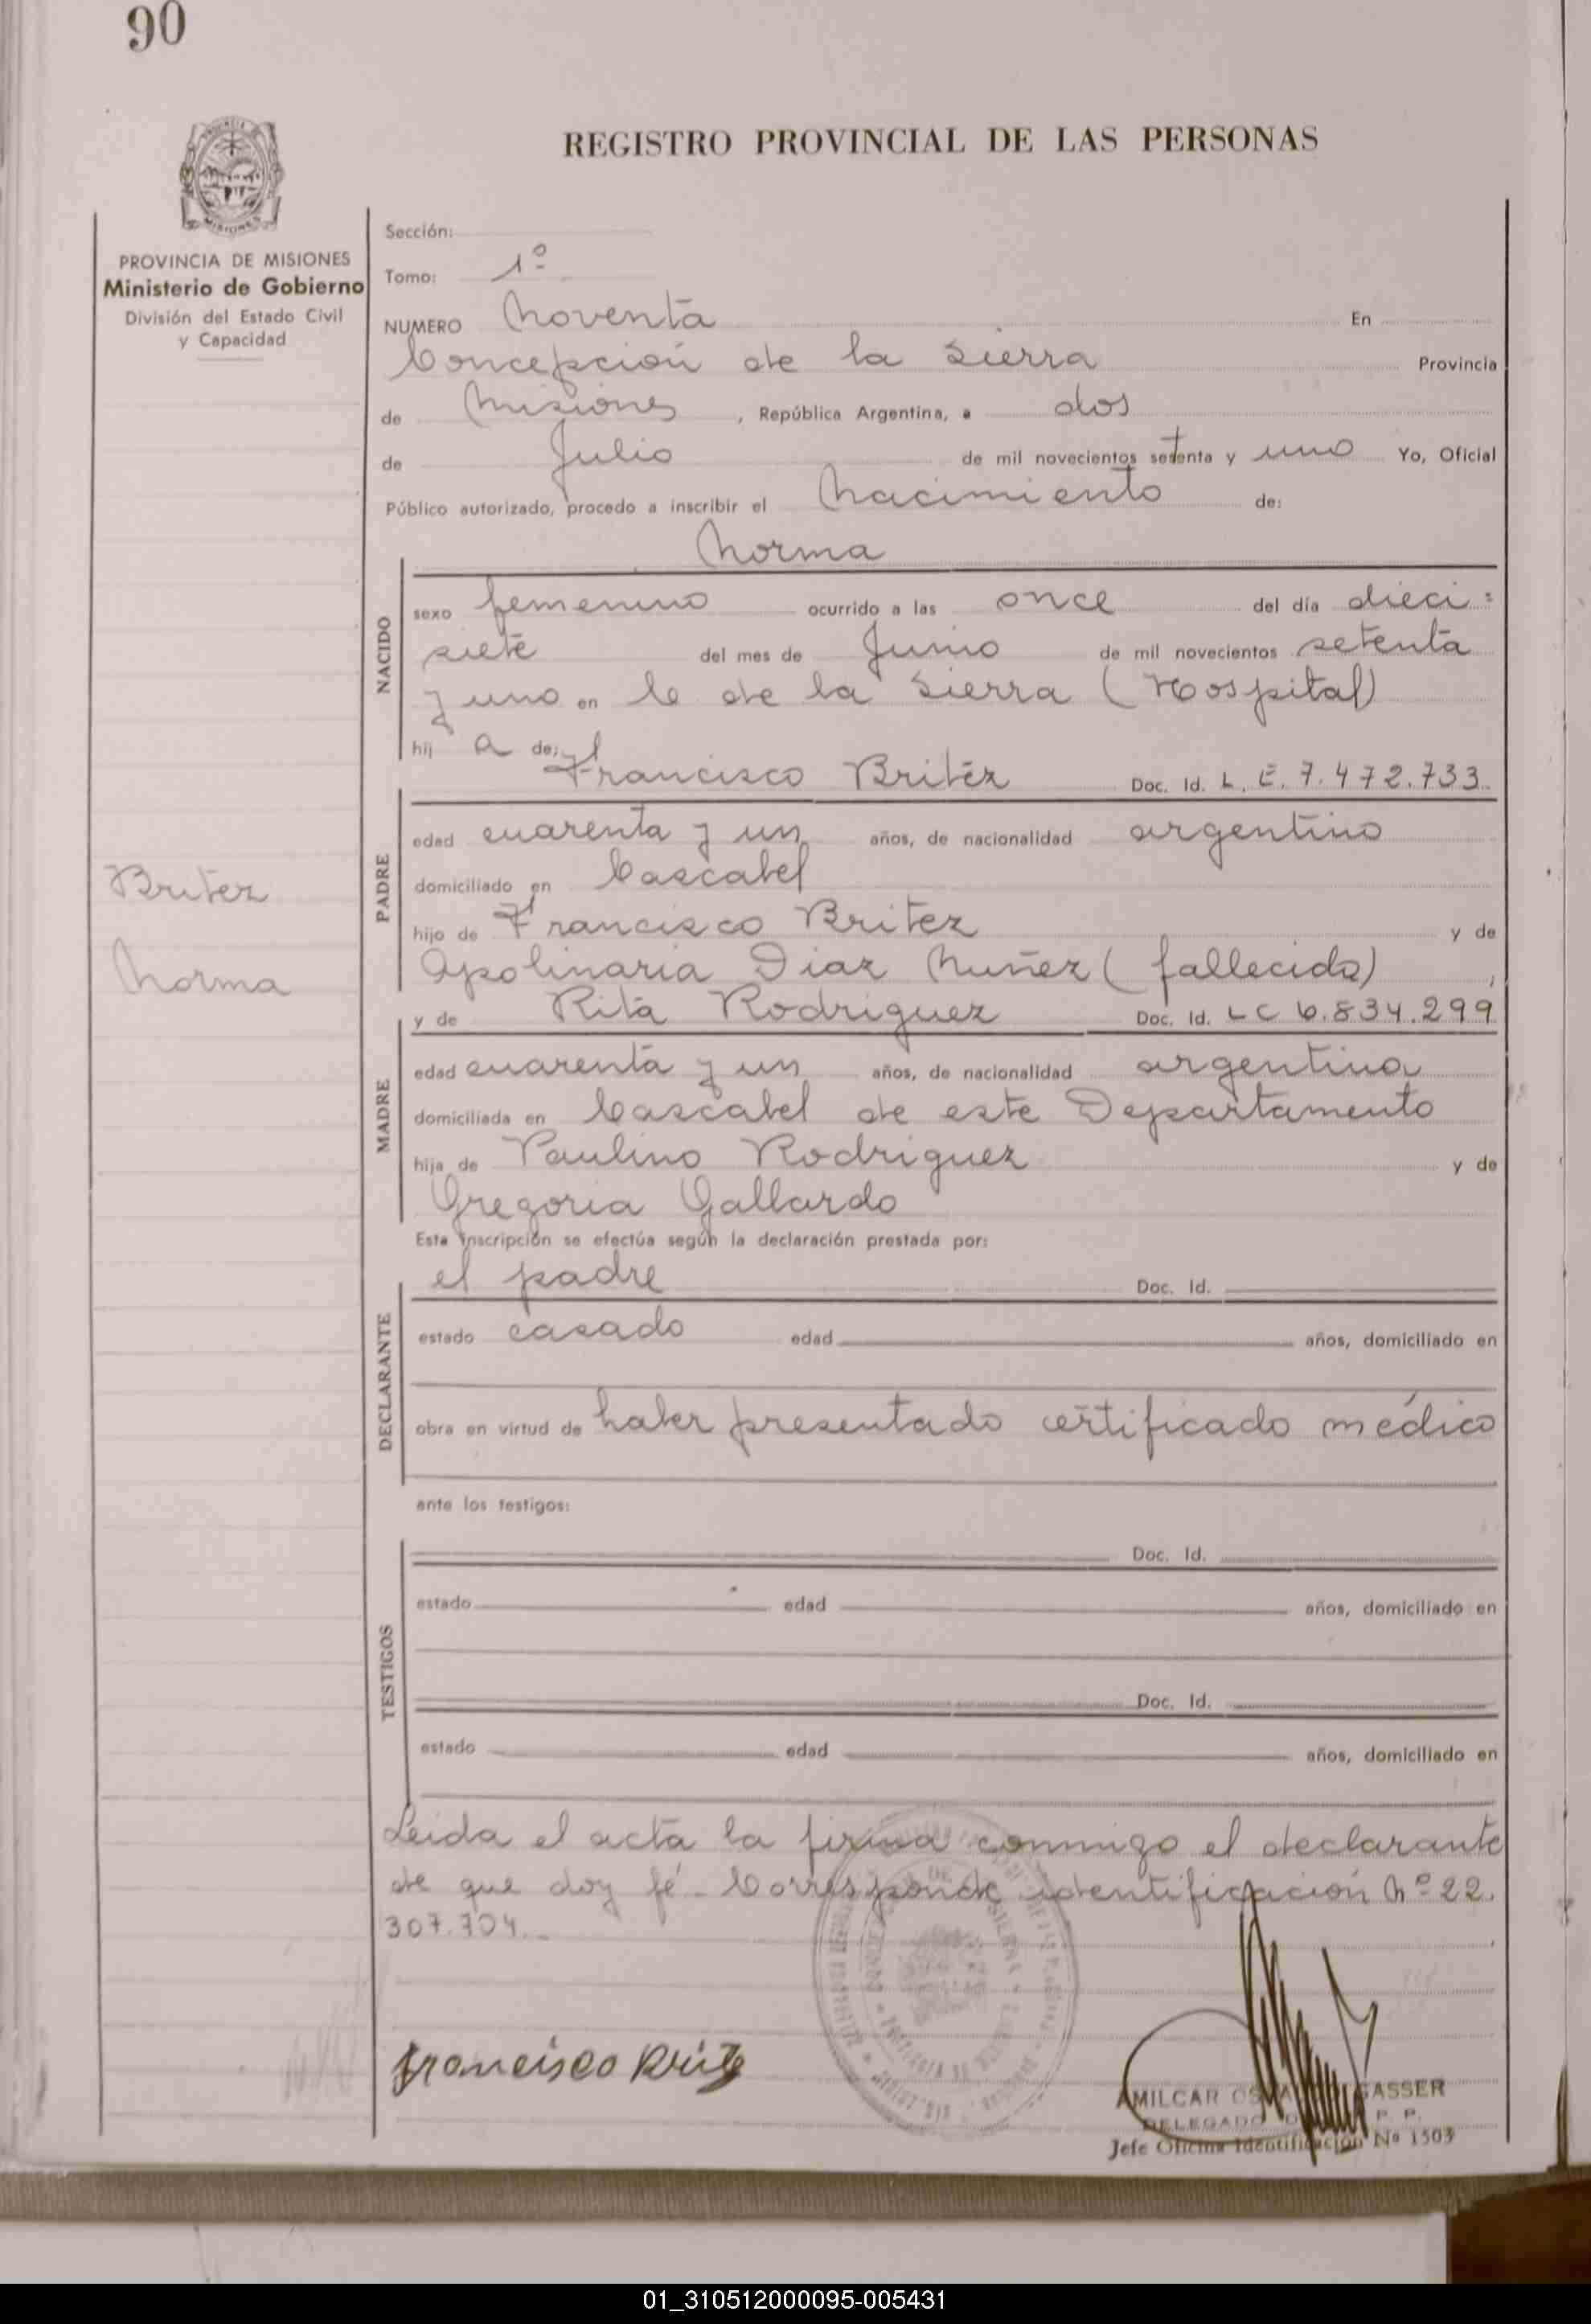 90
PROVINCIA DE MISIONES
Ministerio de Gobierno
División del Estado Civil
y Capacidad
REGISTRO PROVINCIAL DE LAS PERSONAS
Sección:
Tomo: 1º
NUMERO Noventa En
Concepción de la Sierra Provincia
de Misiones, República Argentina, a dos
de Julio de mil novecientos setenta y uno Yo, Oficial
Público autorizado, procedo a inscribir el Nacimiento de:
Norma
NACIDO
sexo femenino ocurrido a las once del día dieci=
siete del mes de Junio de mil novecientos setenta
y uno en C de la Sierra (Hospital)
hij a de:
Francisco Britez Doc. Id. L. E. 7.472.733
PADRE
edad cuarenta y un años, de nacionalidad argentino
domiciliado en Cascabel
hijo de Francisco Britez y de
Apolinaria Diaz Nuñez (fallecida),
y de Rita Rodriguez Doc. Id. LC 6.834.299
MADRE
edad cuarenta y un años, de nacionalidad argentina
domiciliada en Cascabel de este Departamento
hija de Paulino Rodriguez y de
Gregoria Gallardo
Esta inscripción se efectúa según la declaración prestada por:
el padre Doc. Id.
DECLARANTE
estado casado edad años, domiciliado en
obra en virtud de haber presentado certificado médico
ante los testigos:
TESTIGOS
Doc. Id.
estado edad años, domiciliado en
Doc. Id.
estado edad años, domiciliado en
Leida el acta la firma conmigo el declarante
de que doy fé. Corresponde identificación Nº 22.
307.704.
Britez
Norma
Francisco Brite
AMILCAR GASSER
DELEGADO P. P.
Jefe Oficina Identificación Nº 1503
01_310512000095-005431